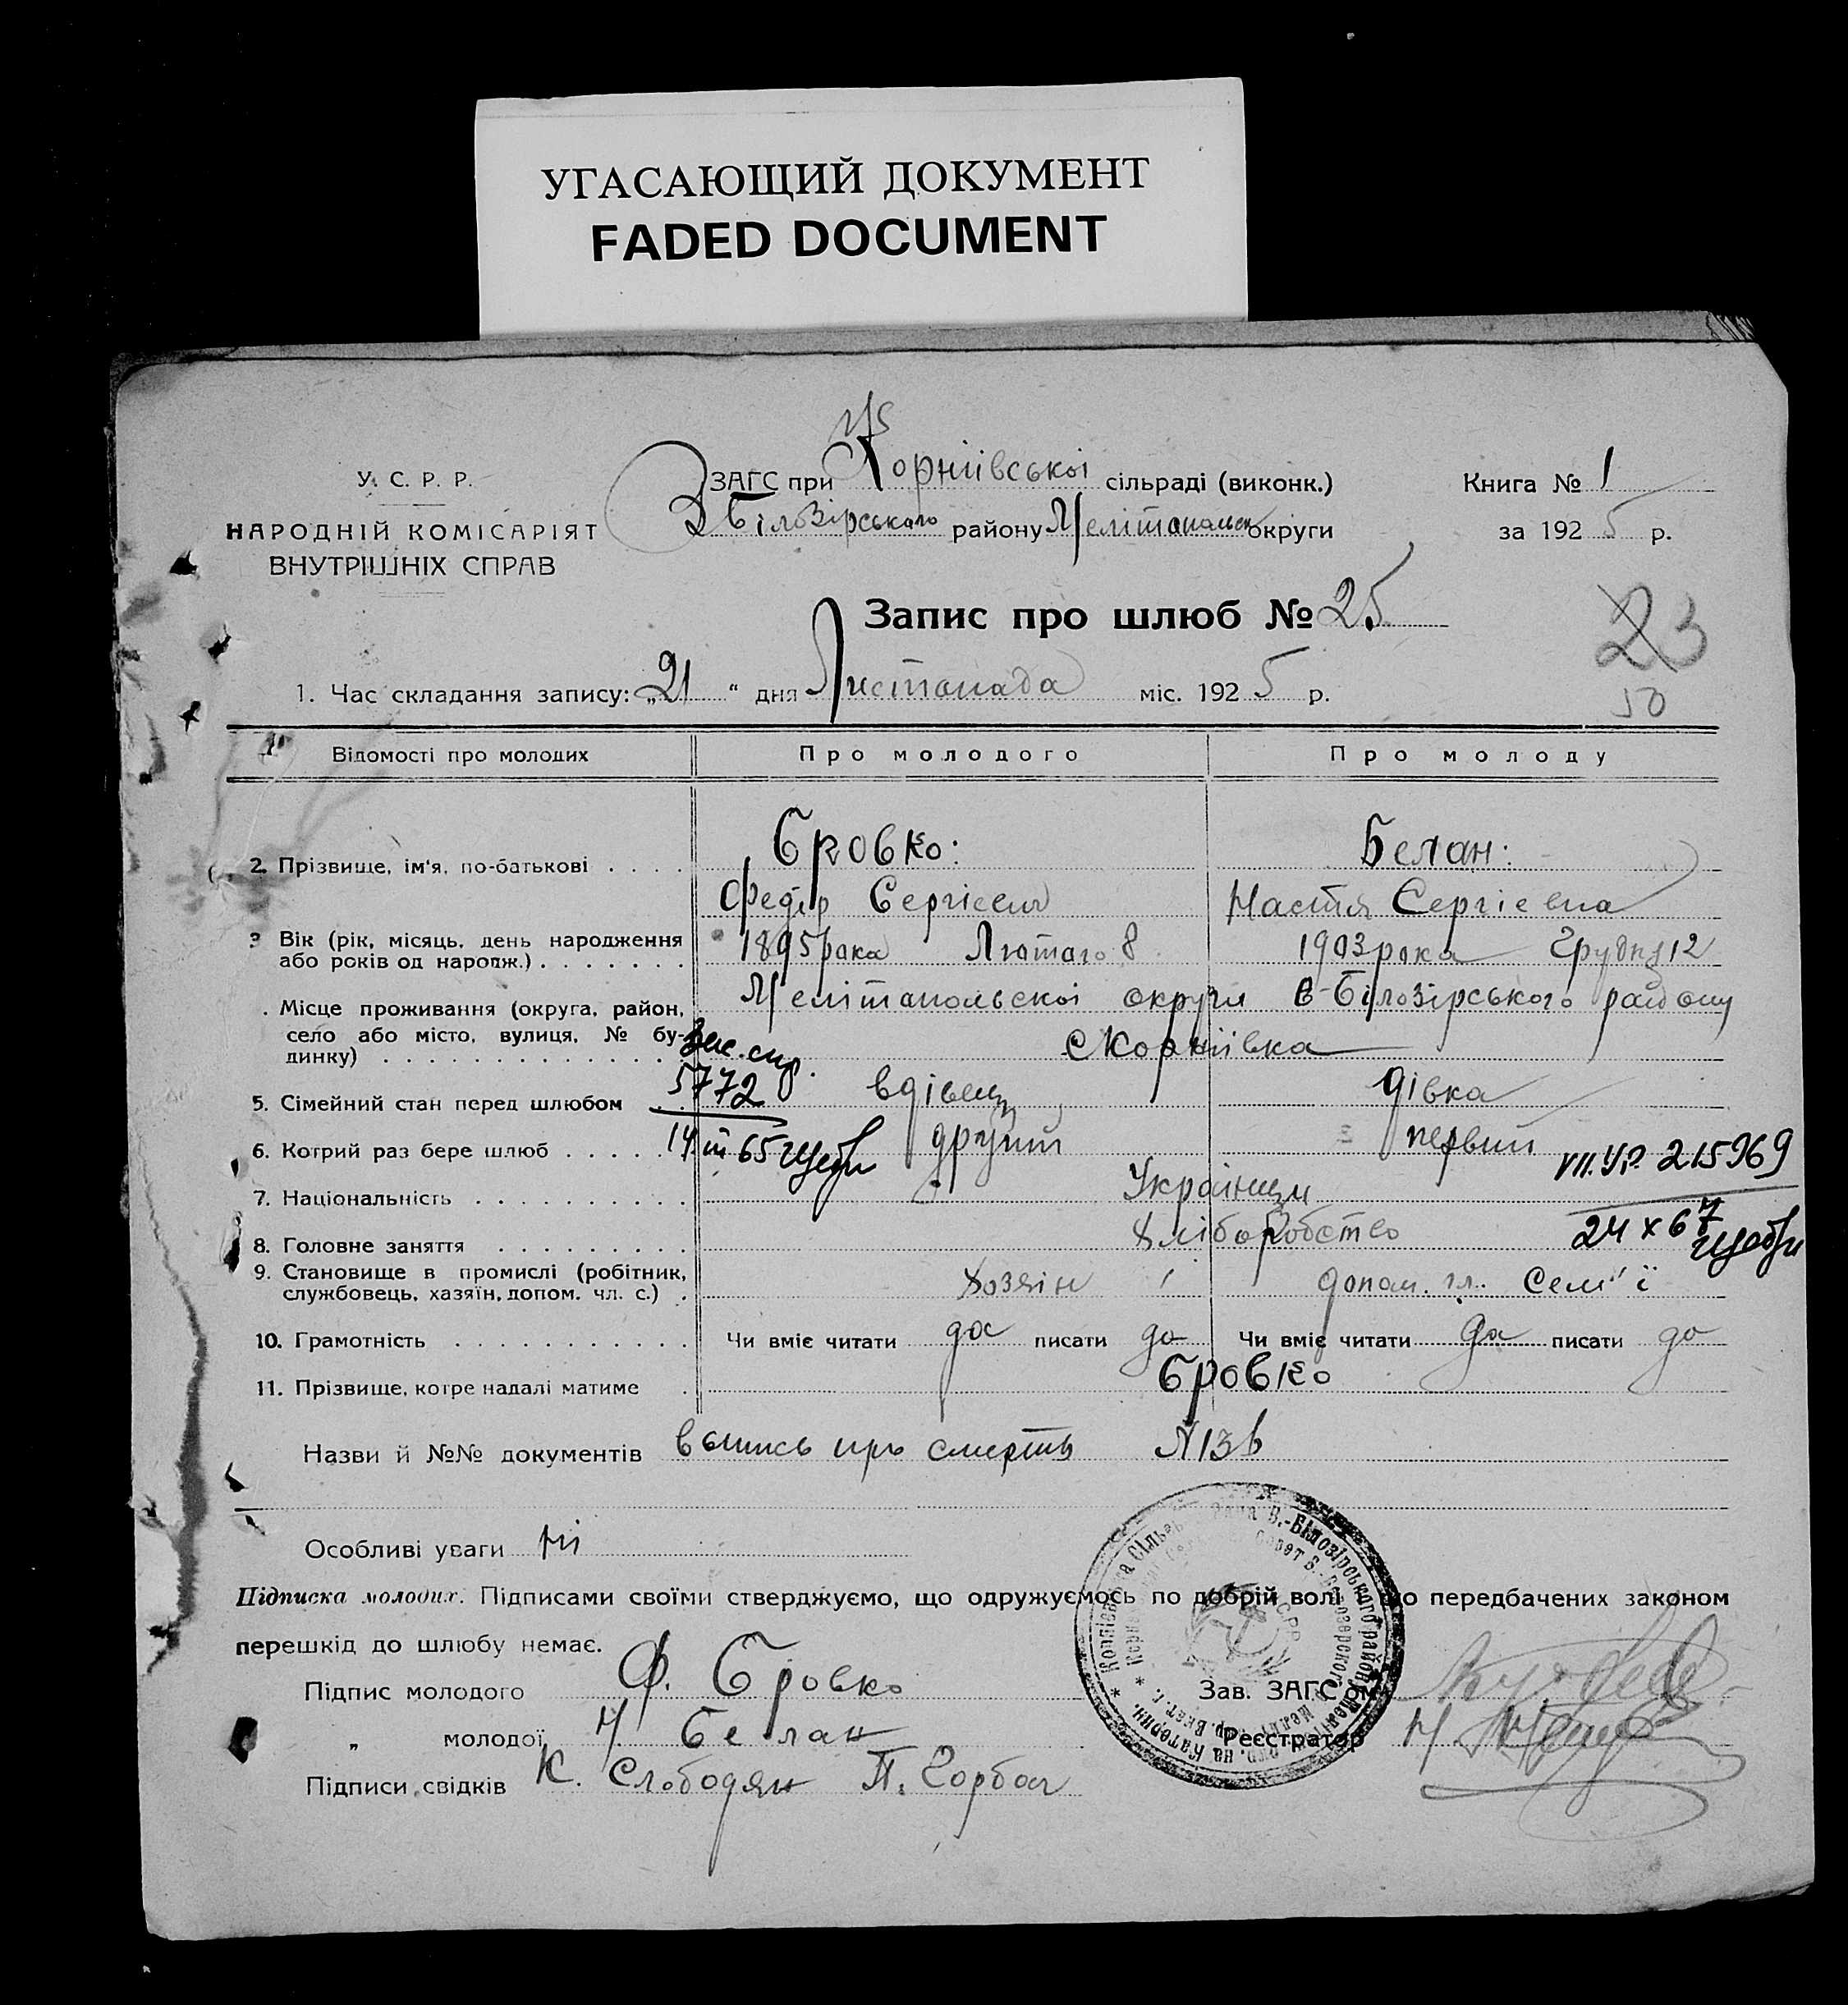 УГАСАЮЩИЙ ДОКУМЕНТ
FADED DOCUMENT
У. С. Р. Р.
НАРОДНІЙ КОМІСАРІЯТ
ВНУТРІШНІХ СПРАВ
ЗАГС при Корніївської сільраді (виконк.)
В Білозірського району Мелітопольск округи
Книга № 1
за 1925 р.
Запис про шлюб № 25
23
50
1. Час складання запису: „21 “ дня Листопада міс. 1925 р.
Відомості про молодих Про молодого Про молоду
2. Прізвище, ім'я, по-батькові . . . . Бровко: Белан:
Федір Сергієвич Настя Сергієвна
3 Вік (рік, місяць, день народження або років од народж.) . . . . . . . 1895 рока Лютаго 8 1903 рока Грудня 12
. Місце проживання (округа, район, село або місто, вулиця, № будинку) . . . . . . . . . . . . . . Мелітапольскоі округи В-Білозірського району
с Корніївка
Зак. спр.
5772
5. Сімейний стан перед шлюбом . вдівец дівка
6. Котрий раз бере шлюб . . . . . другий первий
65
215969
7. Національність . . . . . . . . . . Українци
8. Головне заняття . . . . . . . . . Хліборобство
24 х 67
9. Становище в промислі (робітник, службовець, хазяїн, допом. чл. с.) . Хозяін допом. гл. Сем'ї
10. Грамотність . . . . . . . . . . . Чи вміє читати да писати да Чи вміє читати да писати да
11. Прізвище, котре надалі матиме . Бровко
Назви й №№ документів випись про смерть
Особливі уваги ні
Підписка молодих. Підписами своїми стверджуємо, що одружуємось по добрій волі, що передбачених законом
перешкід до шлюбу немає.
Підпис молодого Ф. Бровко
„ молодої Н. Белан
Підписи свідків К. Слободян П. Горбач
Зав. ЗАГС'ом
Реєстратор